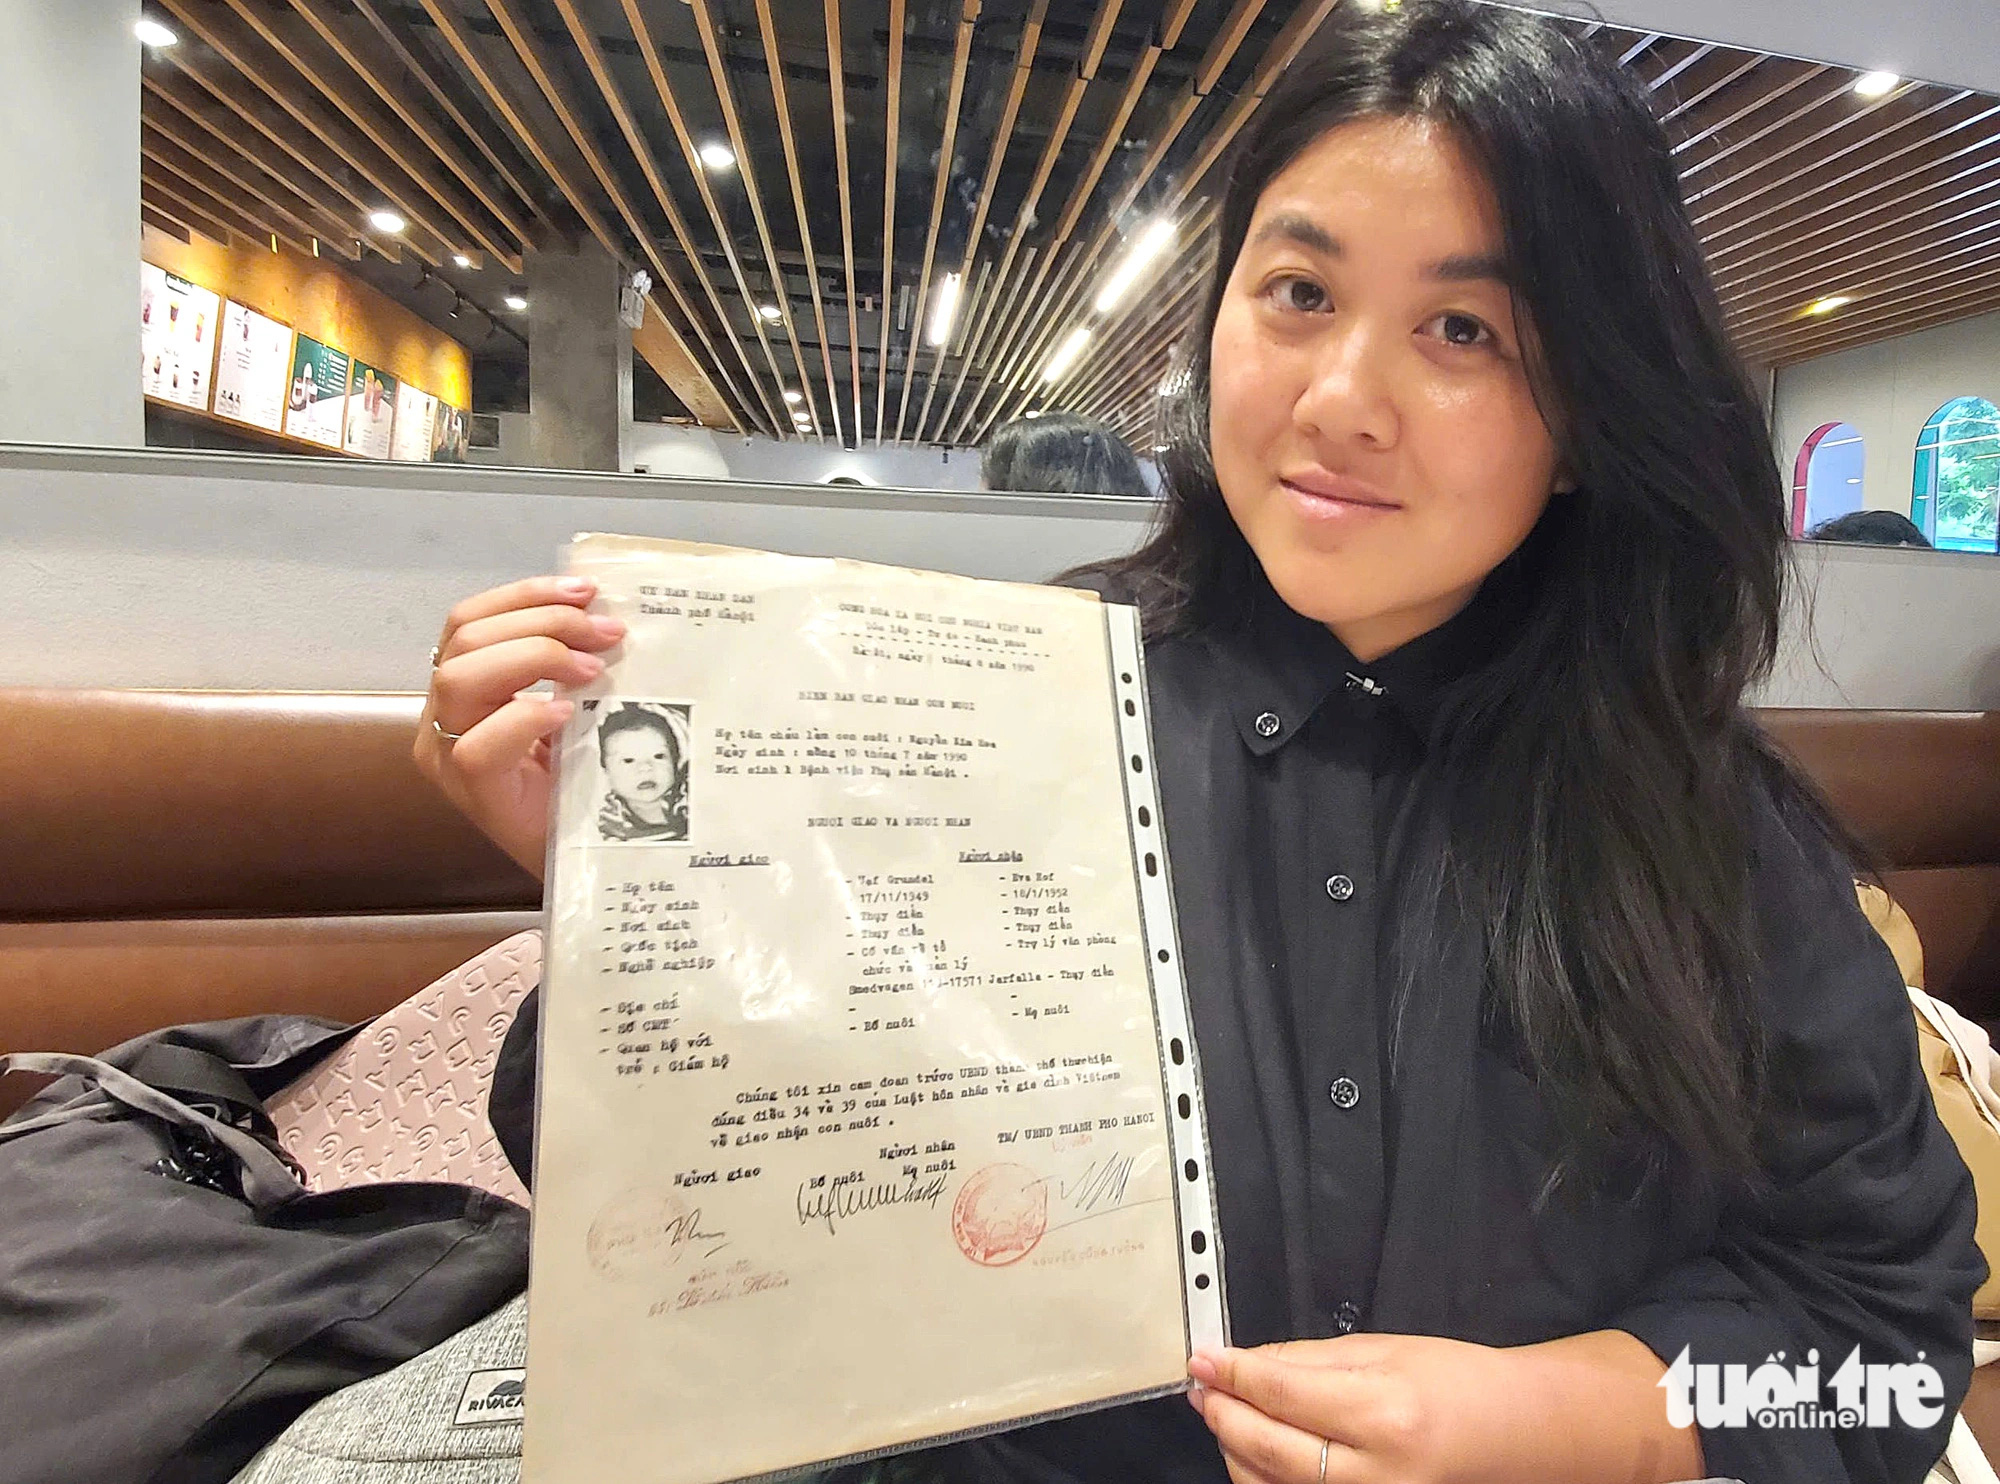 UY BAN NHAN DAN
Thành phố Hànội
CONG HOA XA HOI CHU NGHIA VIET NAM
Độc lập - Tự do - Hạnh phúc
Hà nội, ngày tháng 8 năm 1990
BIEN BAN GIAO NHAN CON NUOI
Họ tên cháu làm con nuôi : Nguyễn Kim Hoa
Ngày sinh : mồng 10 tháng 7 năm 1990
Nơi sinh : Bệnh viện Phụ sản Hànội .
NGUOI GIAO VA NGUOI NHAN
Người giao
Người nhận
- Họ tên
- Ngày sinh
- Nơi sinh
- Quốc tịch
- Nghề nghiệp
- Địa chỉ
- Số CMT
- Quan hệ với
trẻ : Giám hộ
Grundel
- 17/11/1949
- Thụy điển
- Thụy điển
- Cố vấn về tổ
chức và quản lý
- Eva Hof
- 18/1/1952
- Thụy điển
- Thụy điển
- Trợ lý văn phòng
Smedvagen 17571 Jarfalla - Thụy điển
-
-
- Bố nuôi
- Mẹ nuôi
Chúng tôi xin cam đoan trước UBND thành phố thực hiện
đúng điều 34 và 39 của Luật hôn nhân và gia đình Việtnam
về giao nhận con nuôi .
Người giao
Người nhận
Bố nuôi Mẹ nuôi
TM/ UBND THANH PHO HANOI
RIVACASE
tuổi trẻ
online